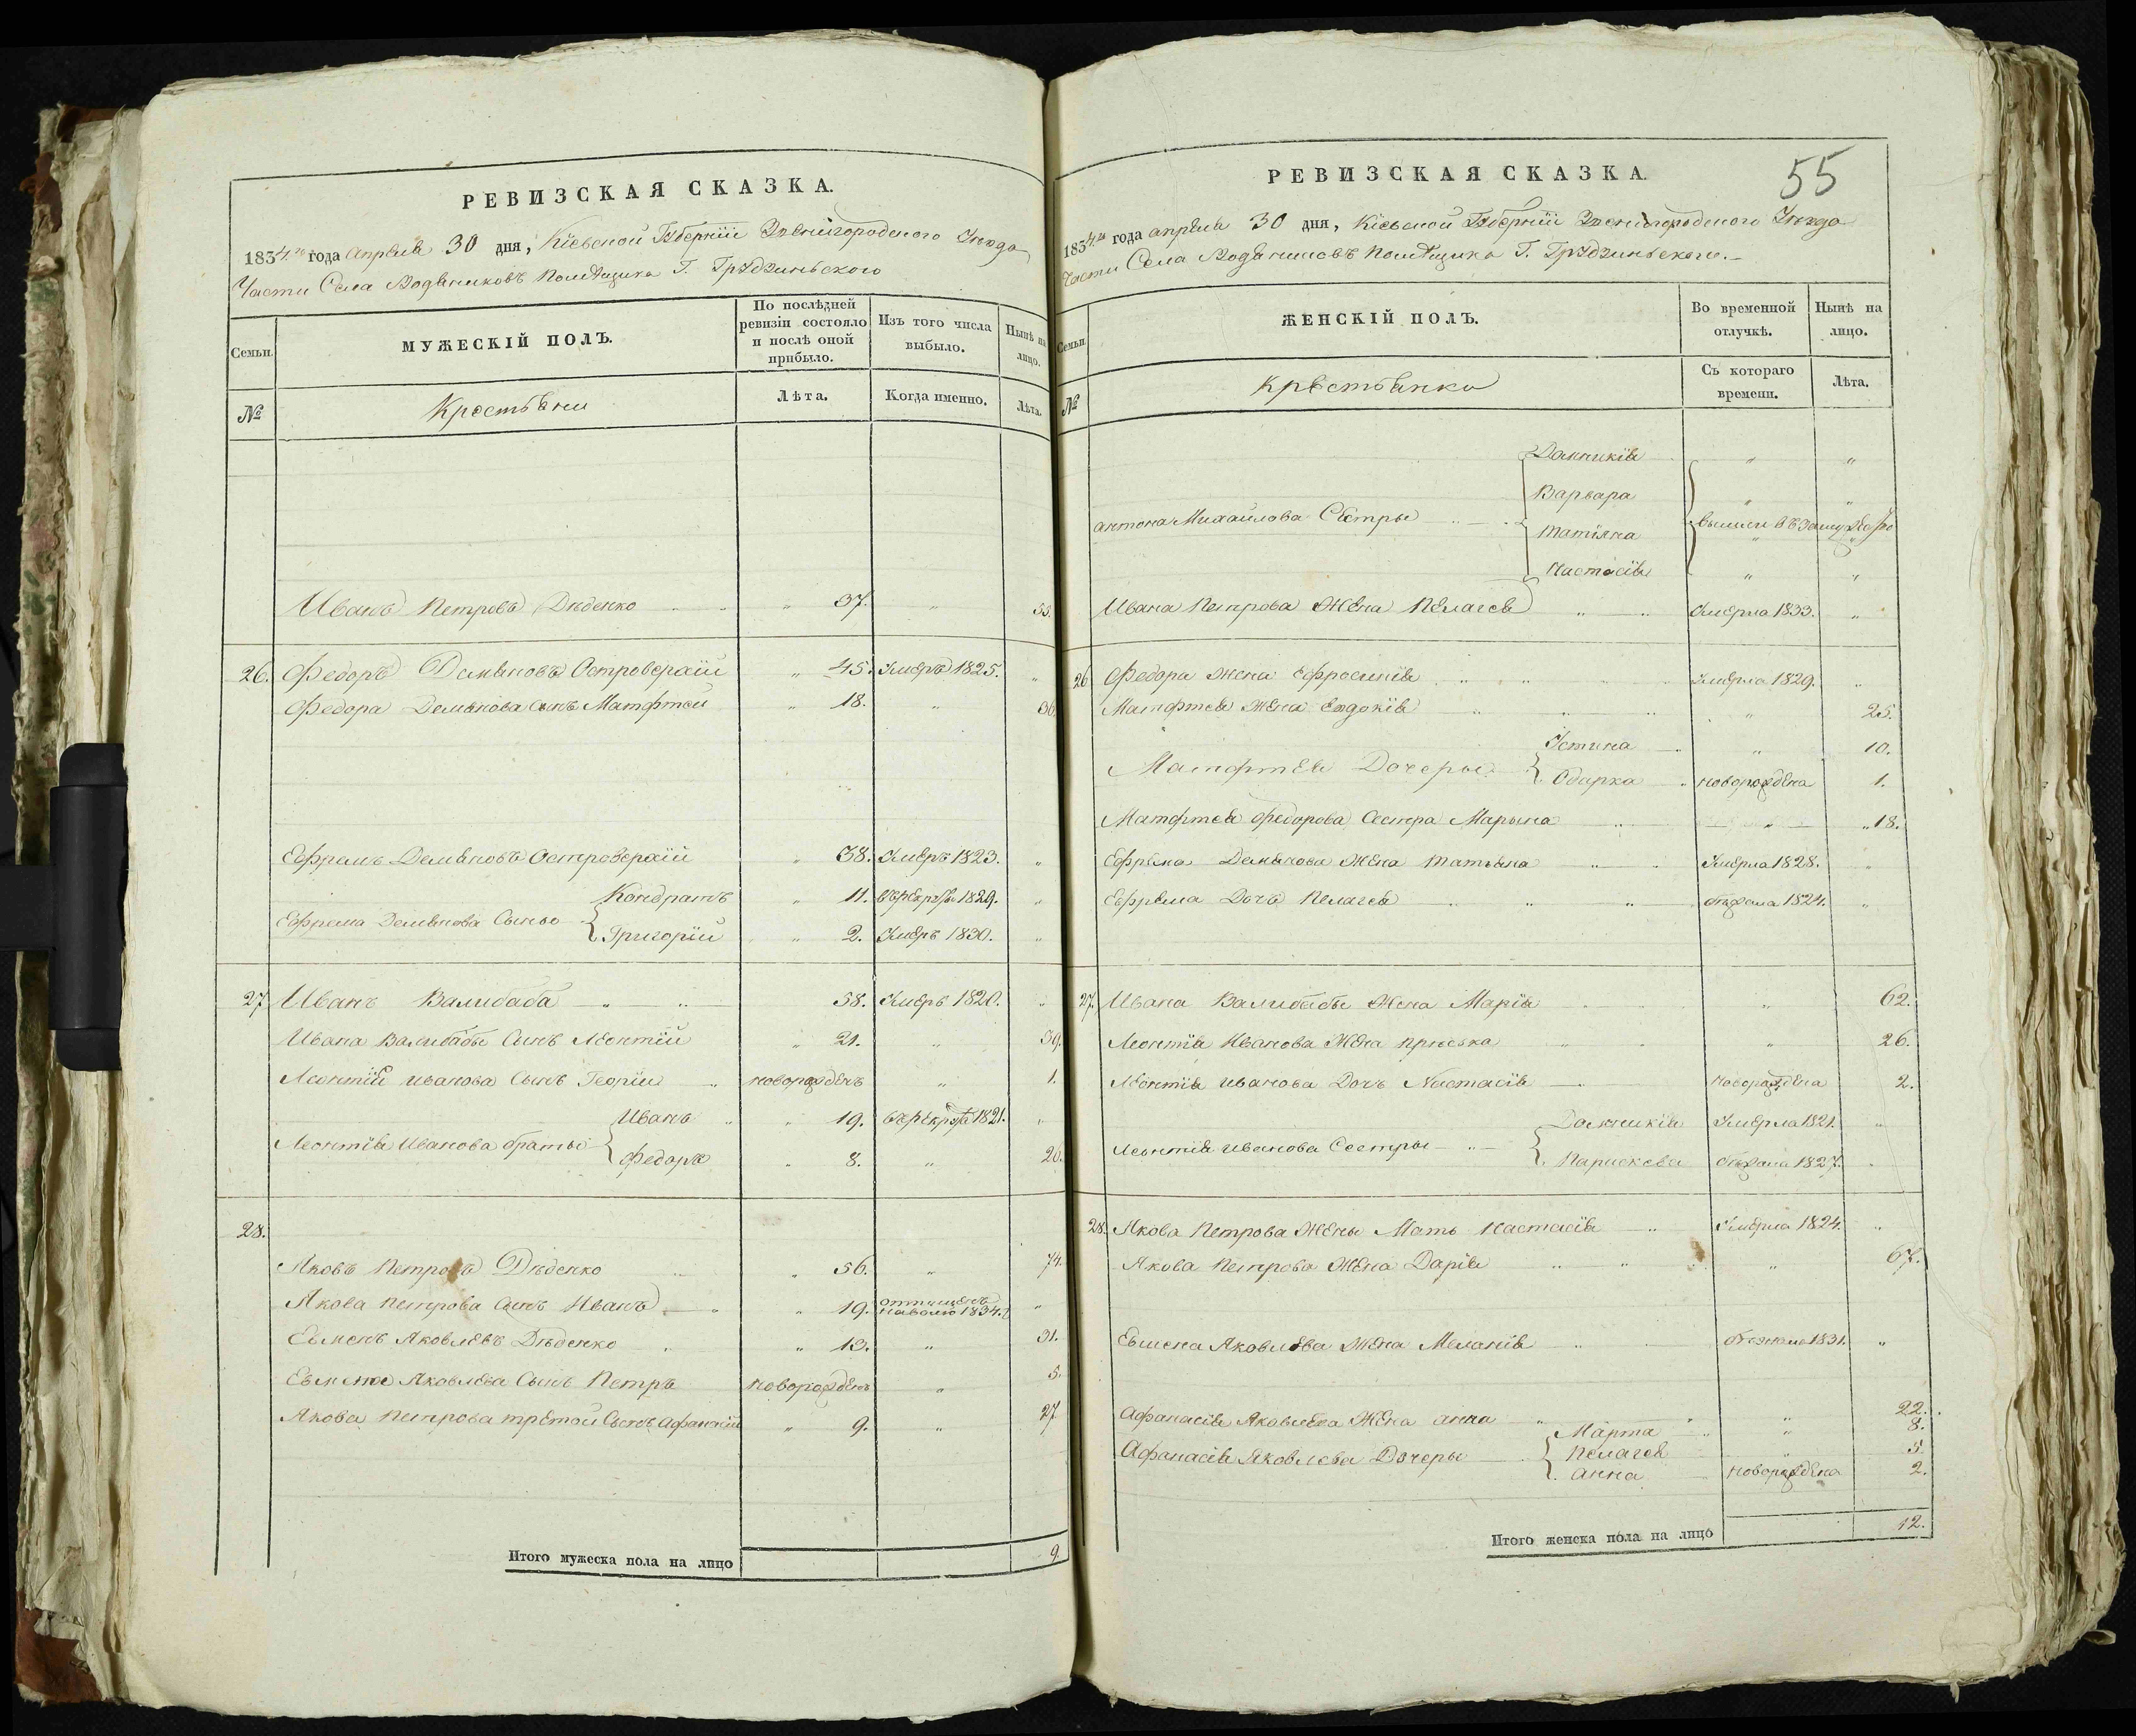 РЕВИЗСКАЯ СКАЗКА.
1834го года апреля 30 дня, Кіевской Губерніи Звенигородского Уезда
Части Села Водяниковъ Помещика Г. Грудзиньского
Семьи.
МУЖЕСКІЙ ПОЛЪ.
По послѣдней ревизіи состояло и послѣ оной прибыло.
Изъ того числа выбыло.
Нынѣ на лицо.
№
Крестьяни
Лѣта.
Когда именно.
Лѣта.
Иванъ Петровъ Дѣденко „ 37. „ 55.
26. Федоръ Демяновъ Островерхій „ 45. Умеръ 1825. „
Федора Демянова Сынъ Матфтей „ 18. „ 36.
Ефремъ Демяновъ Островерхій „ 38. Умеръ 1823. „
Ефрема Демянова Сыны
Кондратъ „ 11. 1829. „
Григорій „ 2. Умеръ 1830. „
27 Иванъ Валибаба 58. Умеръ 1820. „
Ивана Валибабы Сынъ Леонтій „ 21. „ 39.
Леонтія Иванова Сынъ Георгій новорожденъ „ 1.
Леонтія Иванова братья
Иванъ „ 19. 1821. „
Федоръ „ 8. „ 26.
28.
Яковъ Петровъ Дѣденко „ 56. „ 74.
Якова Петрова Сынъ Иванъ „ 19. отпущенъ на волю 1834. „
Евменъ Яковлевъ Дѣденко „ 13. „ 31.
Евмена Яковлева Сынъ Петръ новорожденъ „ 5.
Якова Петрова третой Сынъ Афанасій „ 9. „ 27
Итого мужеска пола на лицо 9.
РЕВИЗСКАЯ СКАЗКА.
55
1834го года апреля 30 дня, Кіевской Губерніи Звенигородского Уезда
Части Села Водяниковъ Помещика Г. Грудзиньского.
Семьи.
ЖЕНСКІЙ ПОЛЪ.
Во временной отлучкѣ.
Нынѣ на лицо.
№
Крестьянки
Съ котораго времени.
Лѣта.
Антона Михайлова Сестры
Доминикія „ „
Варвара „ „
Матіяна „ „
Настасія „ „
вышли въ замужество
Ивана Петрова Жена Пелагея „ Умерла 1833. „
26 Федора Жена Ефросинія „ Умерла 1829. „
Матфтея Жена Евдокія „ „ 25.
Матфтея Дочеры
Устина „ 10.
Одарка новорождена 1.
Матфтея Федорова Сестра Марьна „ 18.
Ефрема Демянова Жена Татьяна „ Умерла 1828. „
Ефрема Дочъ Пелагея „ 1824. „
27. Ивана Валибабы Жена Марія „ 62.
Леонтія Иванова Жена Приська „ 26.
Леонтія Иванова Дочъ Настасія новорождена 2.
Леонтія Иванова Сестры
Доминикія Умерла 1821. „
Парискева 1827. „
28. Якова Петрова Жены Мать Настасія „ Умерла 1824. „
Якова Петрова Жена Дарія „ „ 67.
Евмена Яковлева Жена Меланія „ 1831. „
Афанасія Яковлева Жена Анна „ „ 22.
Афанасія Яковлева Дочеры
Марта „ 8.
Пелагея „ 5
Анна новорождена 2.
Итого женска пола на лицо 12.